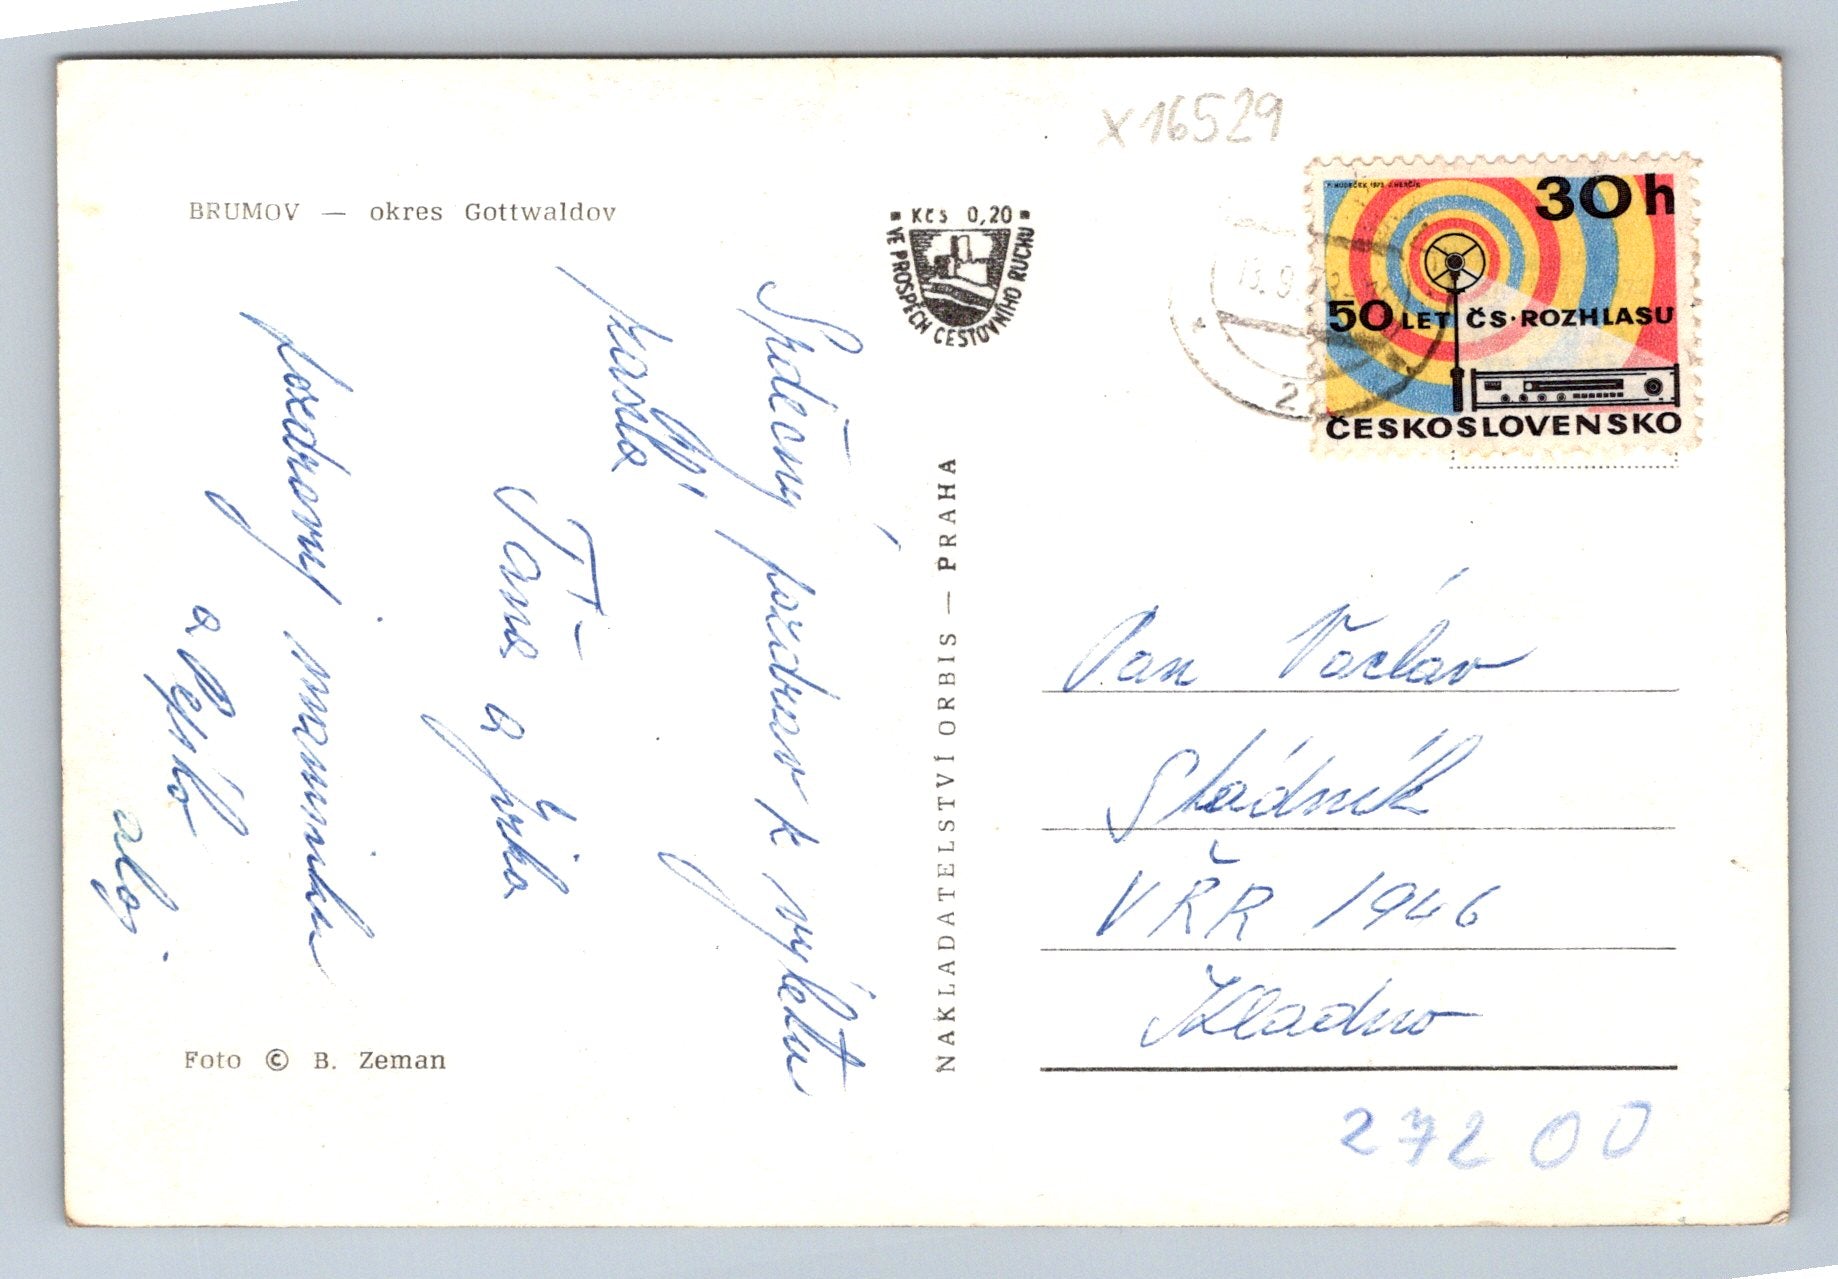 x 16529
BRUMOV — okres Gottwaldov
Kčs 0,20
VE PROSPĚCH CESTOVNÍHO RUCHU
30h
50 LET ČS·ROZHLASU
ČESKOSLOVENSKO
2
Srdečný pozdrav k výletu
posílají
Táňa a Jirka
pozdravuj maminku
a Péťko
ahoj
NAKLADATELSTVÍ ORBIS — PRAHA
Pan Václav
Sládník
VŘR 1946
Kladno
272 00
Foto © B. Zeman